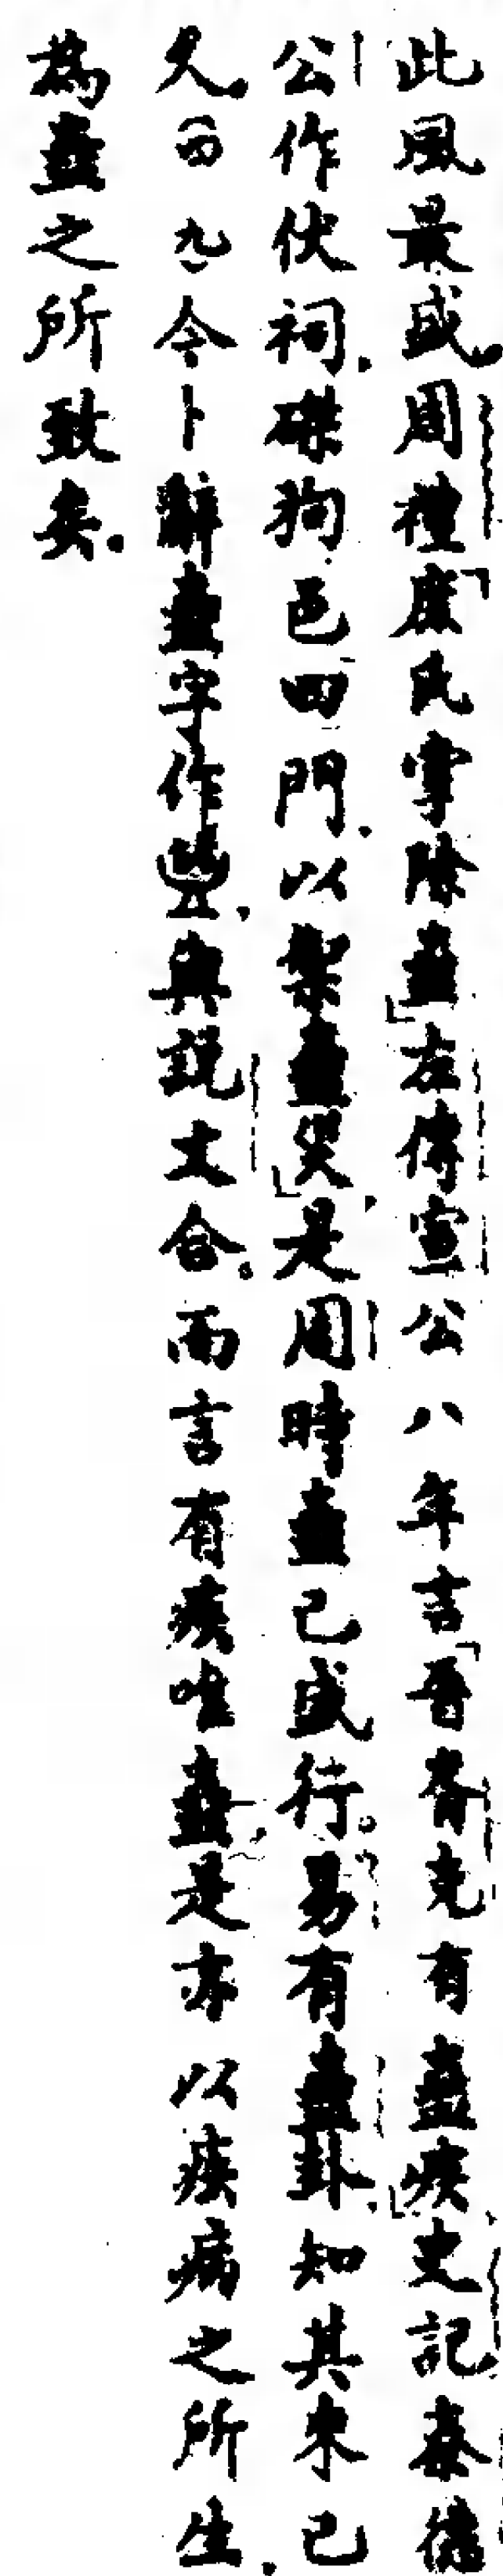 此風最盛周禮「庶氏掌除蠱」左傳宣公八年言「晉胥克有蠱疾」史記秦德
公作伏祠.磔狗邑四門.以禦蠱災」是周時蠱已盛行。易有蠱卦.知其來已
久.(四九)今卜辭蠱字作,與說文合。而言有疾唯蠱,是亦以疾病之所生.
為蠱之所致矣.